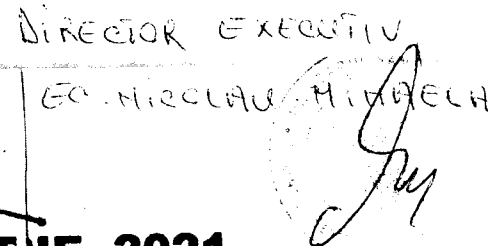 DIRECTOR EXECUTIV
EC. NICOLAU MIHAELA
2021